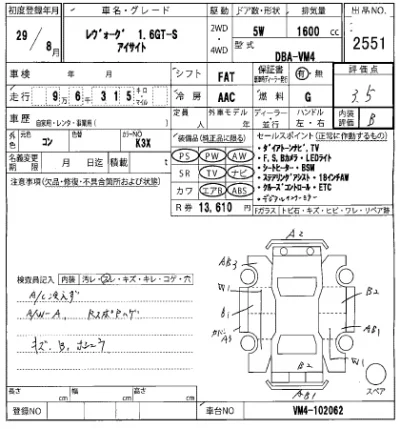 初度登録年月 車名・グレード 駆動 ドア数・形状 排気量 出品NO.
29/8月 レヴォーグ 1.6GT-S アイサイト 2WD・4WD 5W 1600cc 2551
型式 DBA-VM4
車検 年 月 シフト FAT 保証書 有・無 評価点
走行 9万6千315 キロ・マイル 冷房 AAC 燃料 G 3.5
車歴 自家用・レンタ・事業用( ) 定員 人 外車モデル 年 ディーラー・並行 ハンドル 左・右 内装評価 B
外色 元色 コン カラーNO K3X 装備品(純正品に限る) セールスポイント(正常に作動するもの)
名義変更期限 月 日迄 積載 t PS PW AW
・ダイアトーンナビ、TV
・F、S、Bカメラ・LEDライト
SR TV ナビ
・シートヒーター・BSM
・ステアリングアシスト・18インチAW
カワ エアB ABS
・クルーズコントロール・ETC
・デジタルインナーミラー
注意事項(欠品・修復・不具合箇所および状態)
R券 13,610円
Fガラス トビ石・キズ・ヒビ・ワレ・リペア跡
A2
AB3
W1
B2
B1
A3
AB1
W1
B2
AB1
スペア
検査員記入 内装 汚レ・コレ・キズ・キレ・コゲ・穴
A/W-A
キズ、B、
長さ cm 幅 cm 高さ cm
登録NO 車台NO VM4-102062